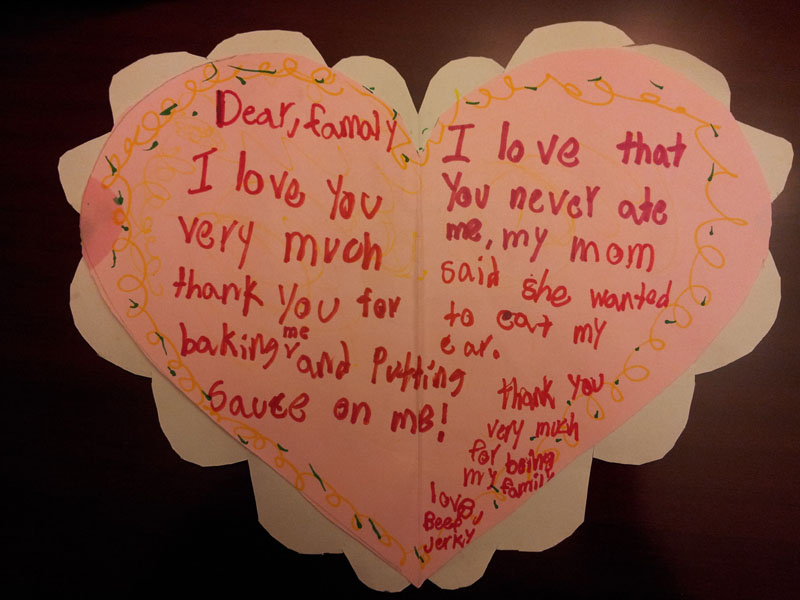 Dear, famaly
I love you
very much
thank you for
baking me and Putting
sauce on me!
I love that
You never ate
me, my mom
said she wanted
to eat my
ear.
thank you
very much
for being
my family
love,
Beef
jerky